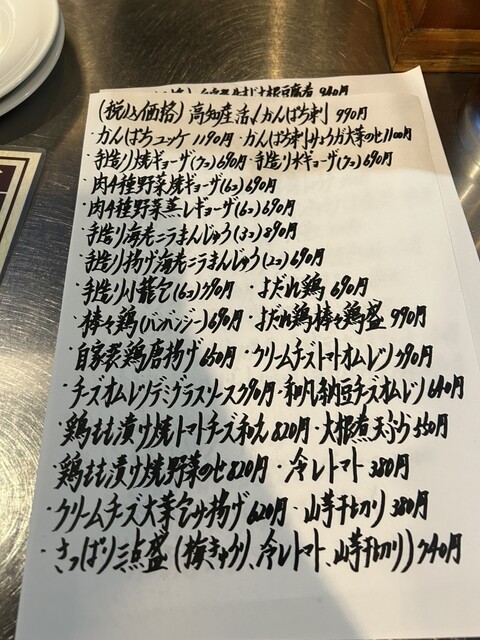 大根豆腐煮 940円
(税込価格) 高知産活〆かんぱち刺 990円
・かんぱちユッケ 1190円・かんぱち刺みょうが大葉のせ1100円
・手造り焼ギョーザ(7コ)690円・手造り水ギョーザ(7コ)690円
・肉4種野菜焼ギョーザ(6コ)690円
・肉4種野菜蒸しギョーザ(6コ)690円
・手造り海老ニラまんじゅう(3コ)890円
・手造り揚げ海老ニラまんじゅう(2コ)690円
・手造り小籠包(6コ)790円 ・よだれ鶏 690円
・棒々鶏(バンバンジー)690円・よだれ鶏棒々鶏盛 990円
・自家製鶏唐揚げ 650円・クリームチーズトマトオムレツ790円
・チーズオムレツデミグラスソース790円・和風納豆チーズオムレツ640円
・鶏もも漬け焼トマトチーズ和え820円・大根煮天ぷら550円
・鶏もも漬け焼野菜のせ820円・冷しトマト380円
・クリームチーズ大葉包み揚げ620円・山芋千切り 380円
・さっぱり三点盛(梅きゅうり、冷しトマト、山芋千切り)740円